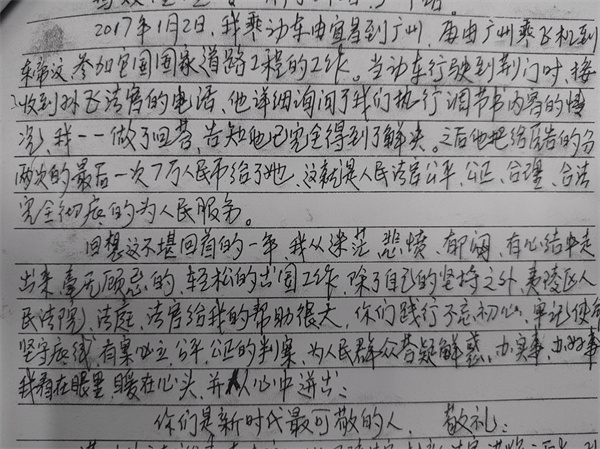 2017年1月2日,我乘动车由宜昌到广州,再由广州乘飞机到
东帝汶参加它国国家道路工程的工作。当动车行驶到荆门时,接
收到孙飞法官的电话,他详细询问了我们执行调节书内容的情
况,我一一做了回答,告知他已完全得到了解决。之后他把给原告的分
两次的最后一次7万人民币给了她,这就是人民法官公平、公正、合理、合法
完全彻底的为人民服务。
回想这不堪回首的一年,我从迷茫、悲愤、郁闷、有心结中走
出来,毫无顾忌的、轻松的出国工作,除了自己的坚持之外,夷陵区人
民法院、法庭、法官给我的帮助很大,你们践行不忘初心,牢记使命
坚守底线,有案必立,公平、公正的判案,为人民群众答疑解惑,办实事,办好事
我看在眼里,暖在心头,并从心中迸出:
你们是新时代最可敬的人, 敬礼: